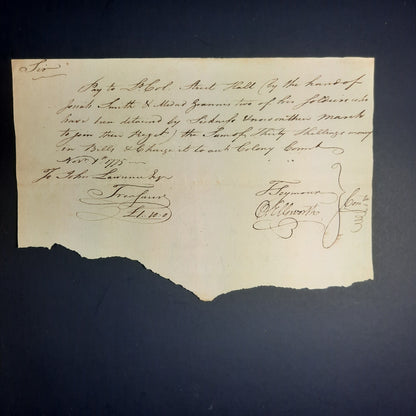 Sir
Pay to Lt Col. Street Hall (by the hand of
Josiah Smith & Medad two of his Soldiers who
have been detained by Sickness & now on their March
to join their Regt) the Sum of Thirty Shillings money
in Bills & Charge it to said Colony Comtt
Nov. 1775
To John Lawrence Esqr
Treasurer
£1.10.0
T Seymour
O Ellsworth
Comtt